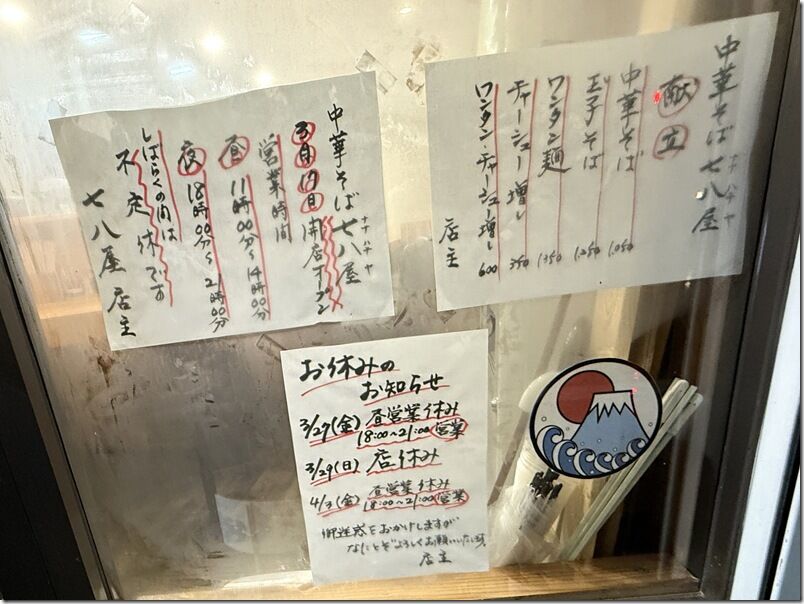 中華そば 七八屋
ナナハチヤ
献立
中華そば 1.050
玉子そば 1.250
ワンタン麺 1350
チャーシュー増し 350
ワンタン・チャーシュー増し 600
店主
中華そば 七八屋
ナナハチヤ
3月17日 開店オープン
営業時間
昼 11時00分〜14時00分
夜 18時00分〜21時00分
しばらくの間は
不定休です
七八屋 店主
お休みの
お知らせ
3/27(金) 昼営業休み
18:00〜21:00 営業
3/29(日) 店休み
4/3(金) 昼営業休み
18:00〜21:00 営業
御迷惑をおかけしますが
なにとぞよろしくお願いいたします。
店主